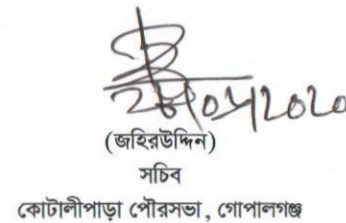 (জহিরউদ্দিন)
সচিব
কোটালীপাড়া পৌরসভা, গোপালগঞ্জ